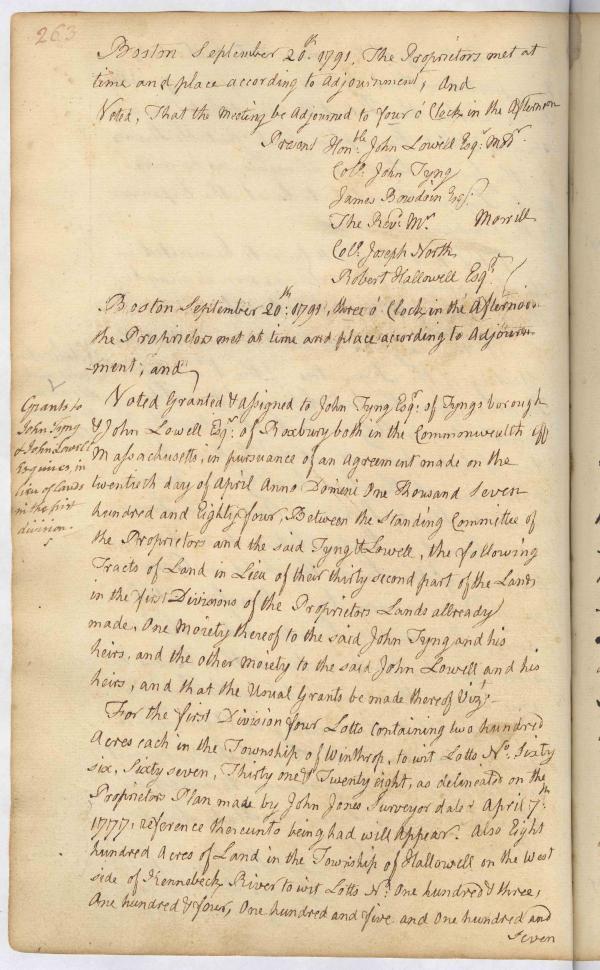 263
Boston September 20th. 1791, The Proprietors met at
time and place according to Adjournment, And
Voted, That the Meeting be Adjourned to four o'Clock in the Afternoon
Present Honble. John Lowell Esqr. Modr.
Coll. John Tyng
James Bowdoin Esq.
The Revd. Mr. Morrill
Coll. Joseph North
Robert Hallowell Esqr.
Boston September 20th. 1791, three o'Clock in the Afternoon
the Proprietors met at time and place according to Adjourn
-ment, and
Voted Granted & assigned to John Tyng Esqr. of Tyngsborough
& John Lowell Esqr. of Roxbury both in the Commonwealth of
Massachusetts, in pursuance of an Agreement made on the
twentieth day of April Anno Domini One Thousand Seven
hundred and Eighty four, Between the Standing Committee of
the Proprietors and the said Tyng & Lowell, the following
Tracts of Land in Lieu of their thirty second part of the Lands
in the first Divisions of the Proprietors Lands allready
made, One Moiety thereof to the said John Tyng and his
heirs, and the other Moiety to the said John Lowell and his
heirs, and that the Usual Grants be made thereof Vizt.
For the first Division four Lotts containing two hundred
Acres each in the Township of Winthrop, to wit Lotts No. Sixty
six, Sixty seven, Thirty one & Twenty eight, as delineated on the
Proprietors Plan made by John Jones Surveyor dated April 7th.
1777, reference thereunto being had will Appear. Also Eight
hundred Acres of Land in the Township of Hallowell on the West
side of Kennebeck River to wit Lotts No. One hundred & three,
One hundred & four, One hundred and five and One hundred and
Seven
Grants to
John Tyng
& John Lowell
Esquires, in
lieu of Lands
in the first
division.